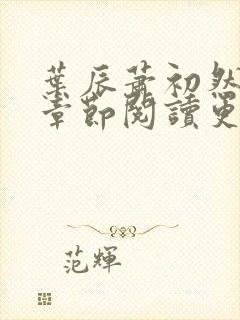 葉辰蕭初然
章節閱讀更
范輝